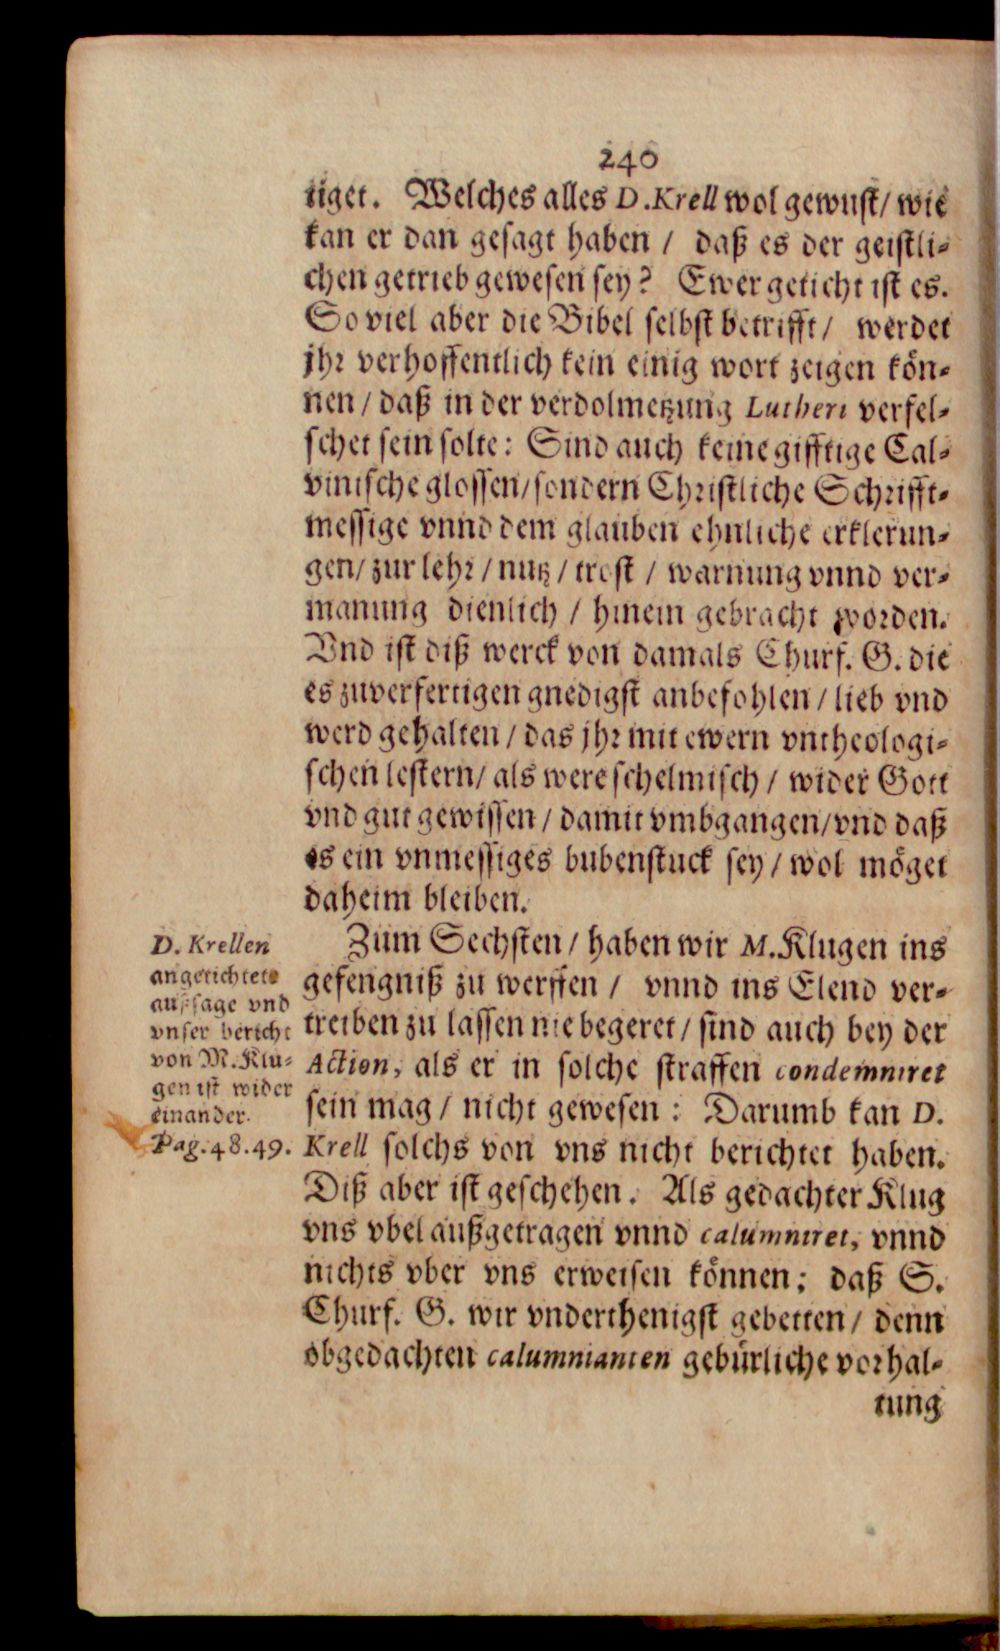 240
tiget. Welches alles D. Krell wol gewust/ wie
kan er dan gesagt haben / daß es der geistli-
chen getrieb gewesen sey? Ewer geticht ist es.
So viel aber die Bibel selbst betrifft/ werdet
jhr verhoffentlich kein einig wort zeigen kön-
nen / daß in der verdolmetzung Lutheri verfel-
schet sein solte: Sind auch keine gifftige Cal-
vinische glossen/ sondern Christliche Schrifft-
messige vnnd dem glauben ehnliche erklerun-
gen/ zur lehr / nutz / trost / warnung vnnd ver-
manung dienlich / hinein gebracht worden.
Vnd ist diß werck von damals Churf. G. die
es zuverfertigen gnedigst anbefohlen / lieb vnd
werd gehalten / das jhr mit ewern vntheologi-
schen lestern/ als were schelmisch / wider Gott
vnd gut gewissen / damit vmbgangen/ vnd daß
es ein vnmessiges bubenstuck sey / wol möget
daheim bleiben.
Zum Sechsten / haben wir M. Klugen ins
gefengniß zu werffen / vnnd ins Elend ver-
treiben zu lassen nie begeret / sind auch bey der
Action, als er in solche straffen condemniret
sein mag / nicht gewesen : Darumb kan D.
Krell solchs von vns nicht berichtet haben.
Diß aber ist geschehen. Als gedachter Klug
vns vbel außgetragen vnnd calumniret, vnnd
nichts vber vns erweisen können; daß S.
Churf. G. wir vnderthenigst gebetten / denn
obgedachten calumnianten gebürliche vorhal-
tung
D. Krellen
angerichtete
aussage vnd
vnser bericht
von M. Klu-
gen ist wider
einander.
Pag. 48. 49.